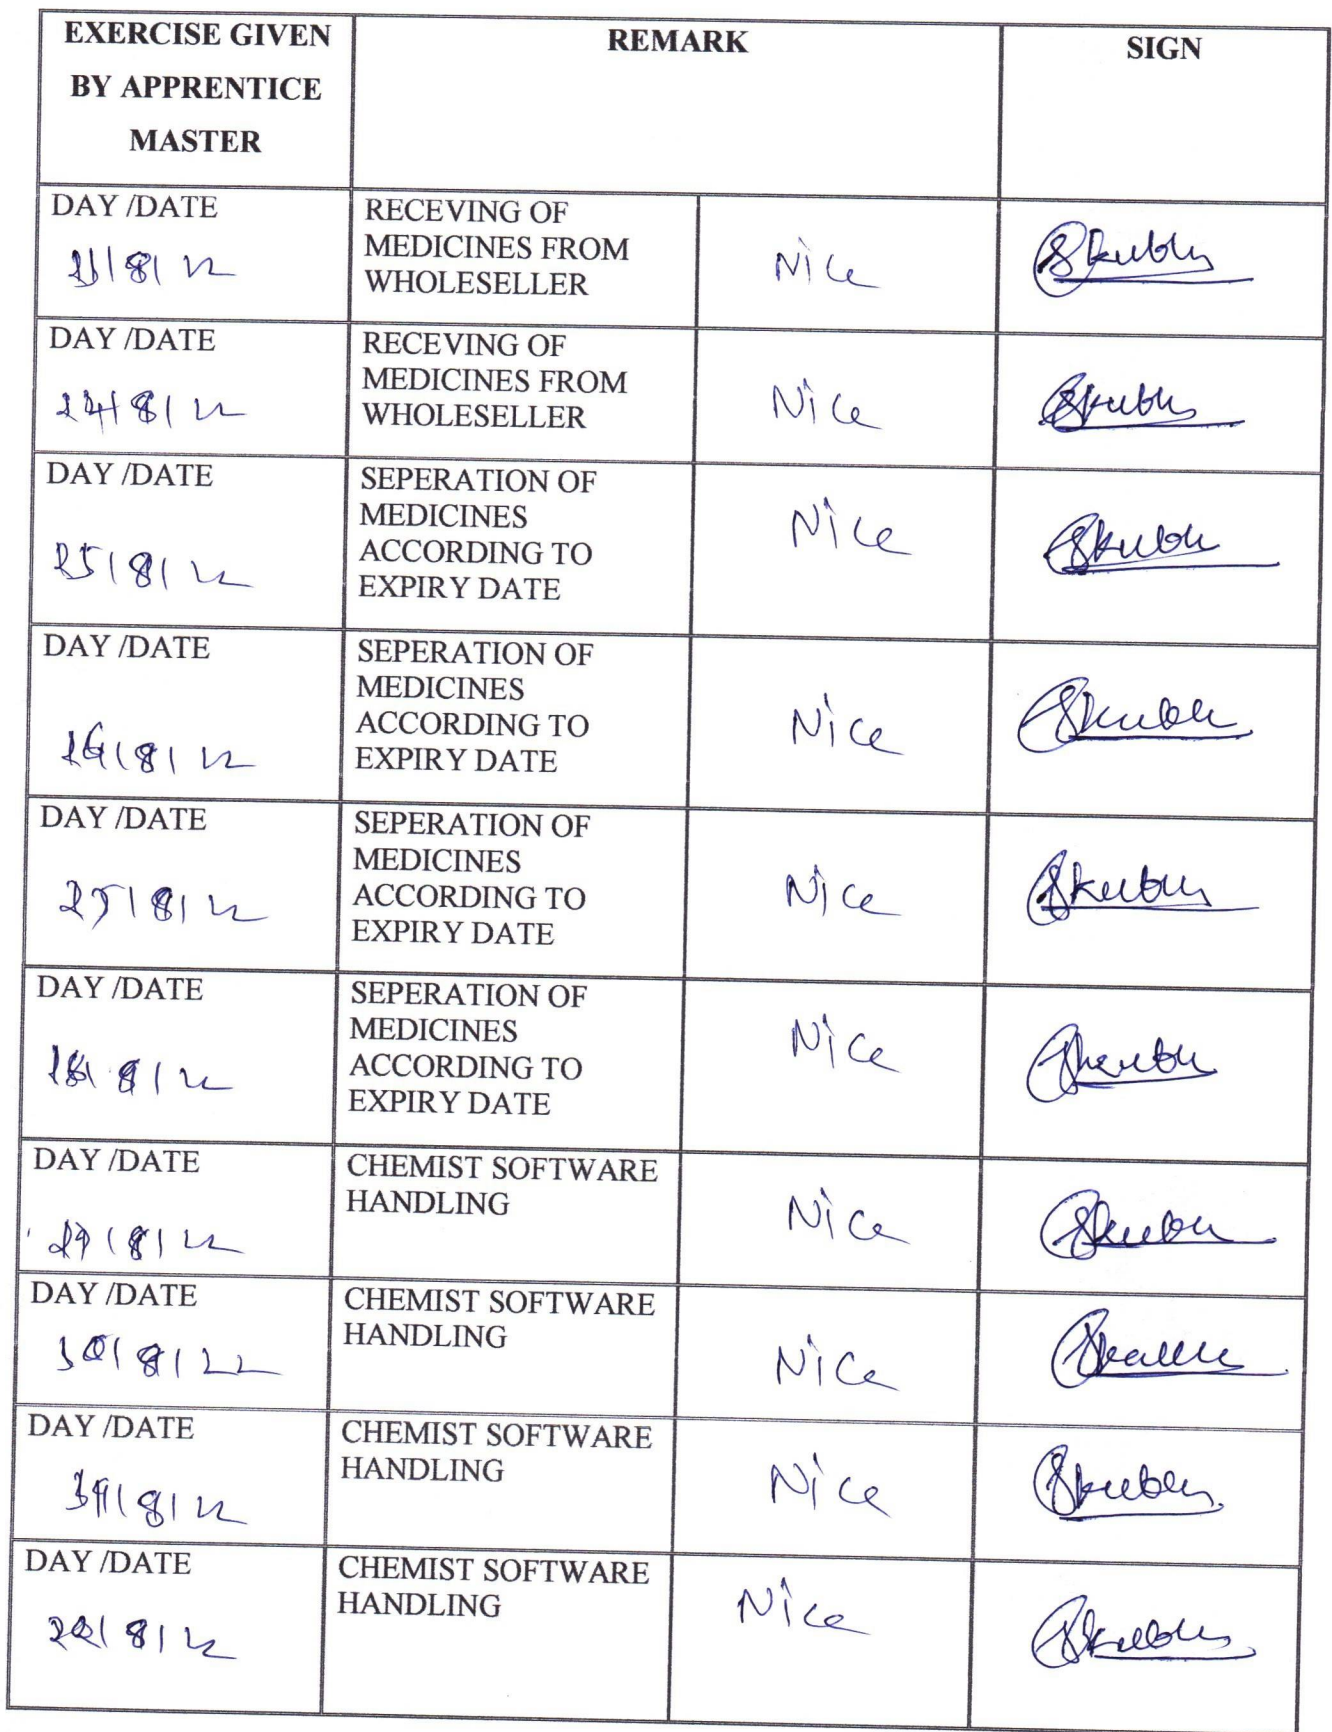 EXERCISE GIVEN
BY APPRENTICE
MASTER
REMARK
SIGN
DAY /DATE
RECEVING OF
MEDICINES FROM
WHOLESELLER
Nice
DAY /DATE
24/8/22
RECEVING OF
MEDICINES FROM
WHOLESELLER
Nice
DAY /DATE
25/8/22
SEPERATION OF
MEDICINES
ACCORDING TO
EXPIRY DATE
Nice
DAY /DATE
26/8/22
SEPERATION OF
MEDICINES
ACCORDING TO
EXPIRY DATE
Nice
DAY /DATE
27/8/22
SEPERATION OF
MEDICINES
ACCORDING TO
EXPIRY DATE
Nice
DAY /DATE
SEPERATION OF
MEDICINES
ACCORDING TO
EXPIRY DATE
Nice
DAY /DATE
29/8/22
CHEMIST SOFTWARE
HANDLING
Nice
DAY /DATE
30/8/22
CHEMIST SOFTWARE
HANDLING
Nice
DAY /DATE
31/8/22
CHEMIST SOFTWARE
HANDLING
Nice
DAY /DATE
CHEMIST SOFTWARE
HANDLING
Nice